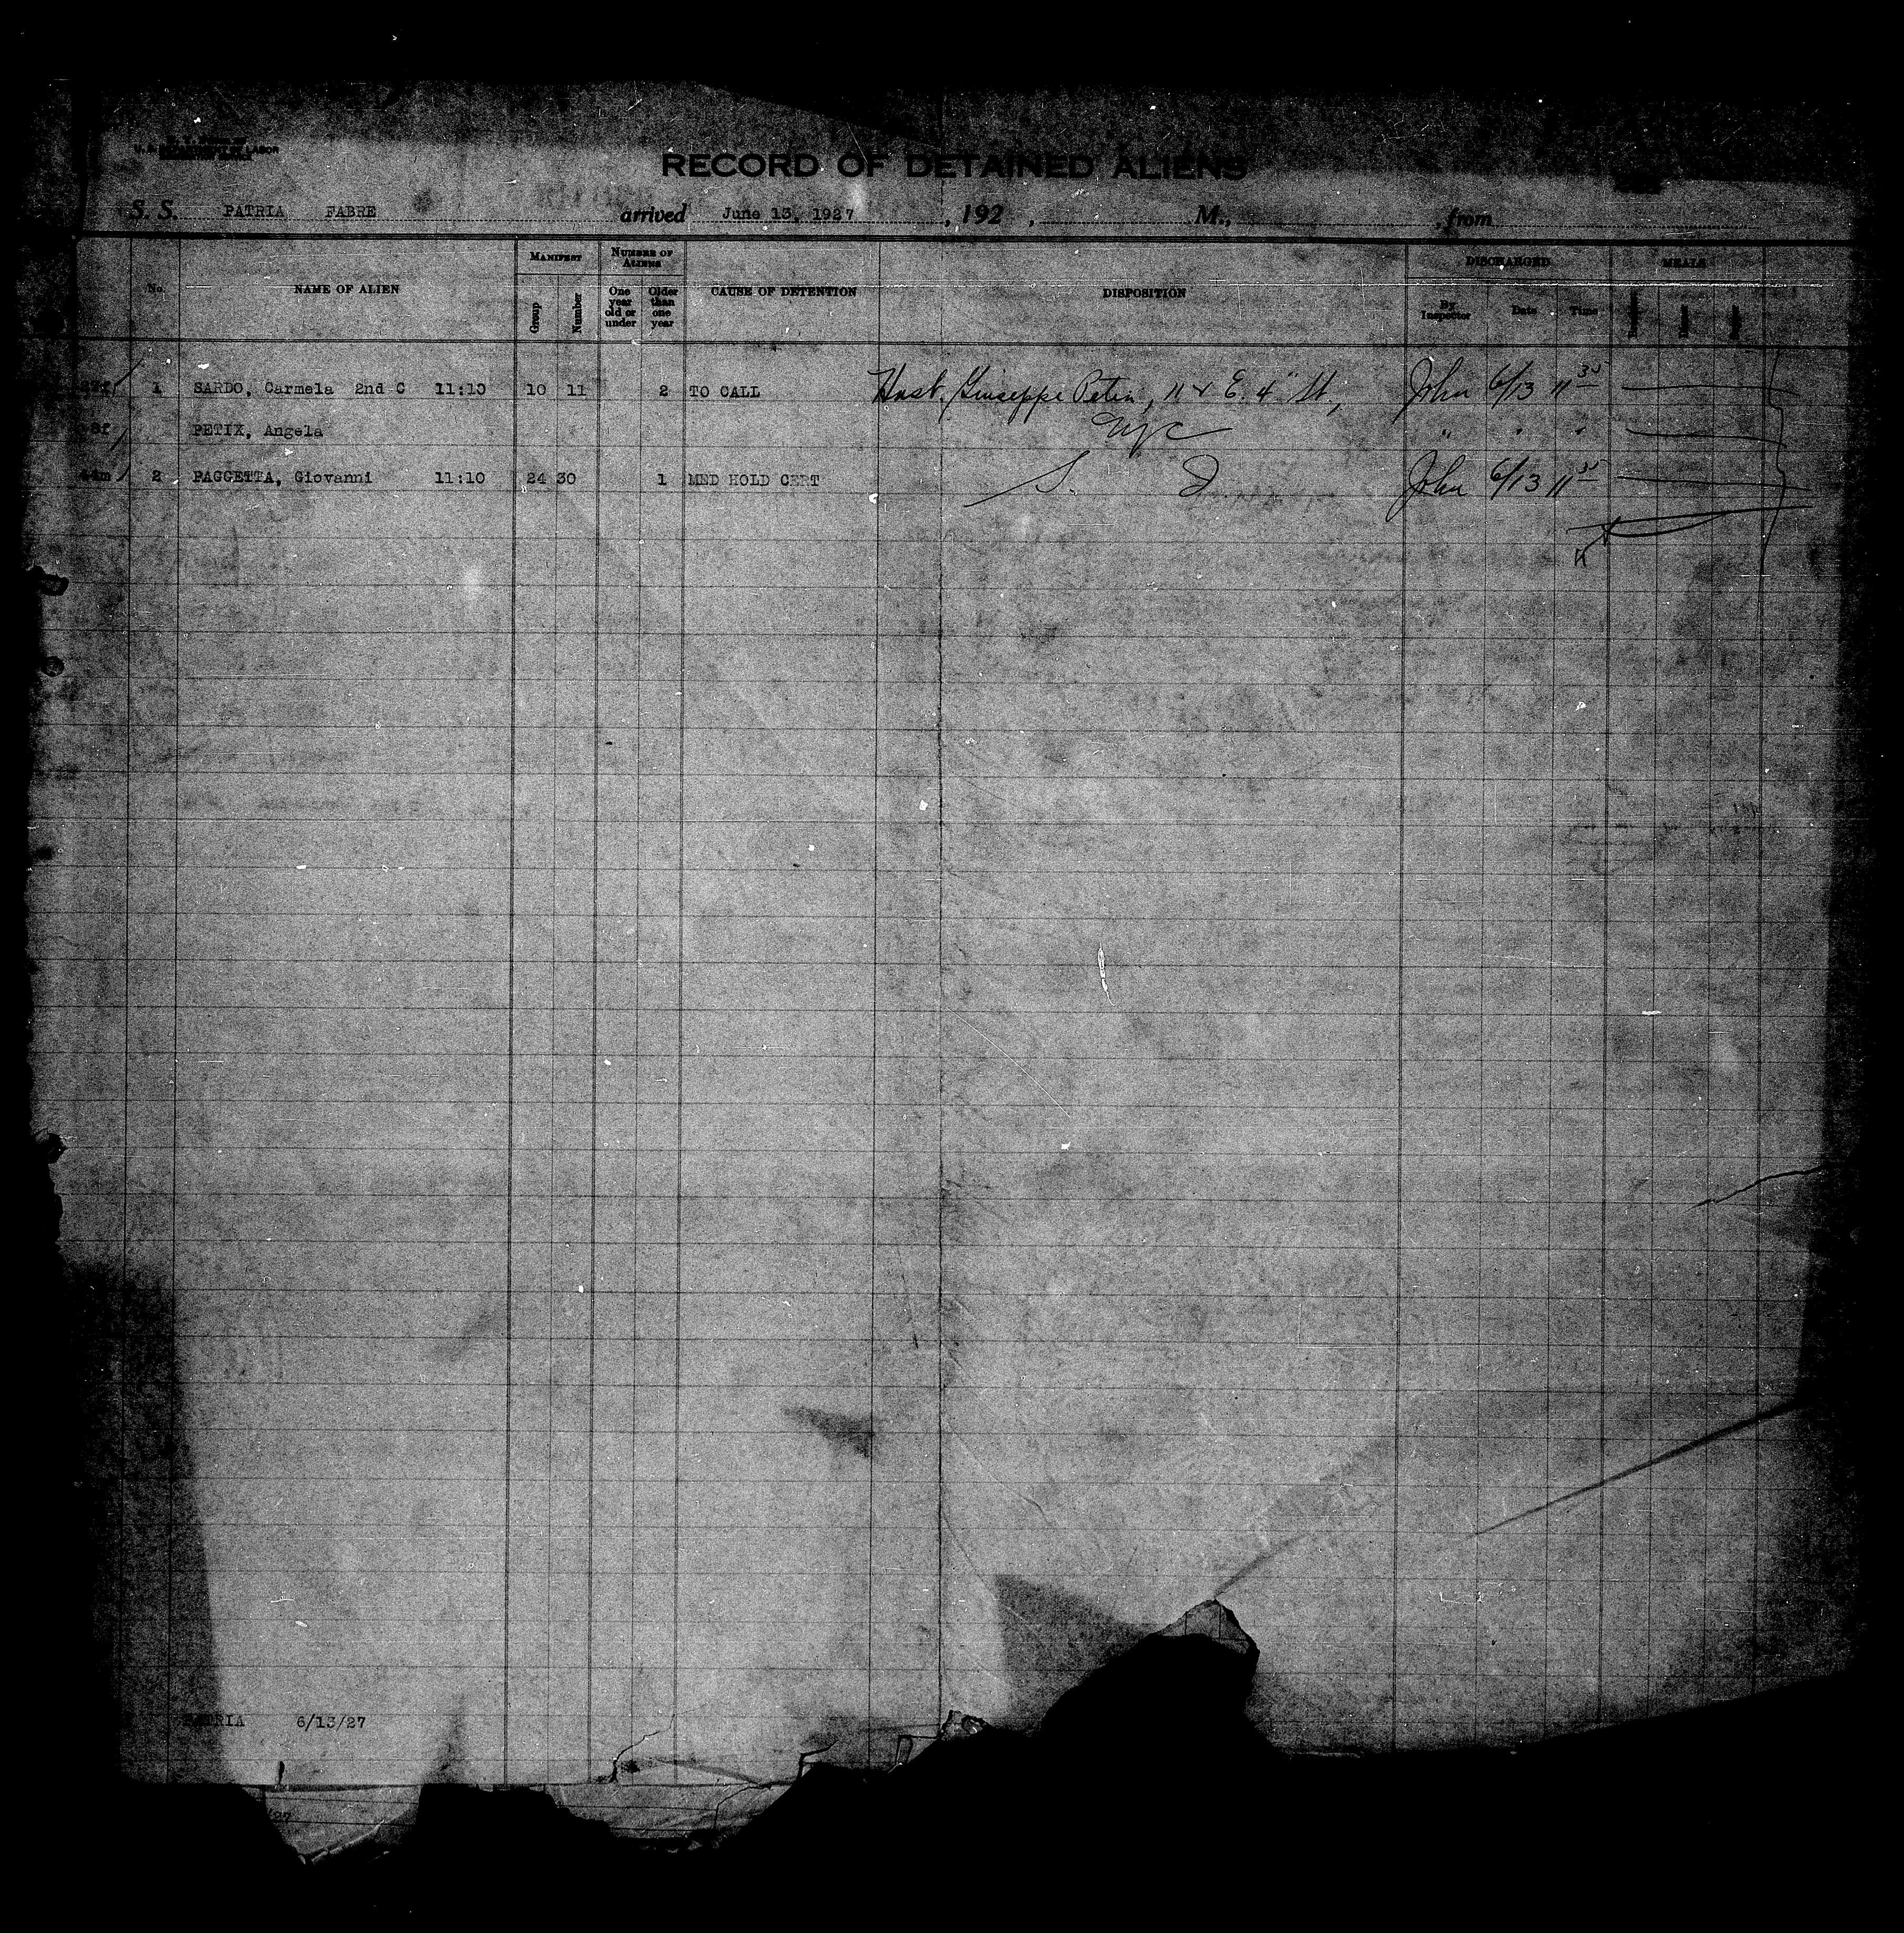 U. S. DEPARTMENT OF LABOR
RECORD OF DETAINED ALIENS
S. S. PATRIA FABRE arrived June 13, 1927, 192 , M., , from
No. NAME OF ALIEN MANIFEST Group Number NUMBER OF ALIENS One year old or under Older than one year CAUSE OF DETENTION DISPOSITION DISCHARGED By Inspector Date Time MEALS
1 SARDO, Carmela 2nd C 11:10 10 11 2 TO CALL Husb. Giuseppe E. 4" St., John 6/13 11 35
PETIX, Angela NYC " " "
44m 2 PAGGETTA, Giovanni 11:10 24 30 1 MED HOLD CERT S. John 6/13 11 35
PATRIA 6/13/27
/27